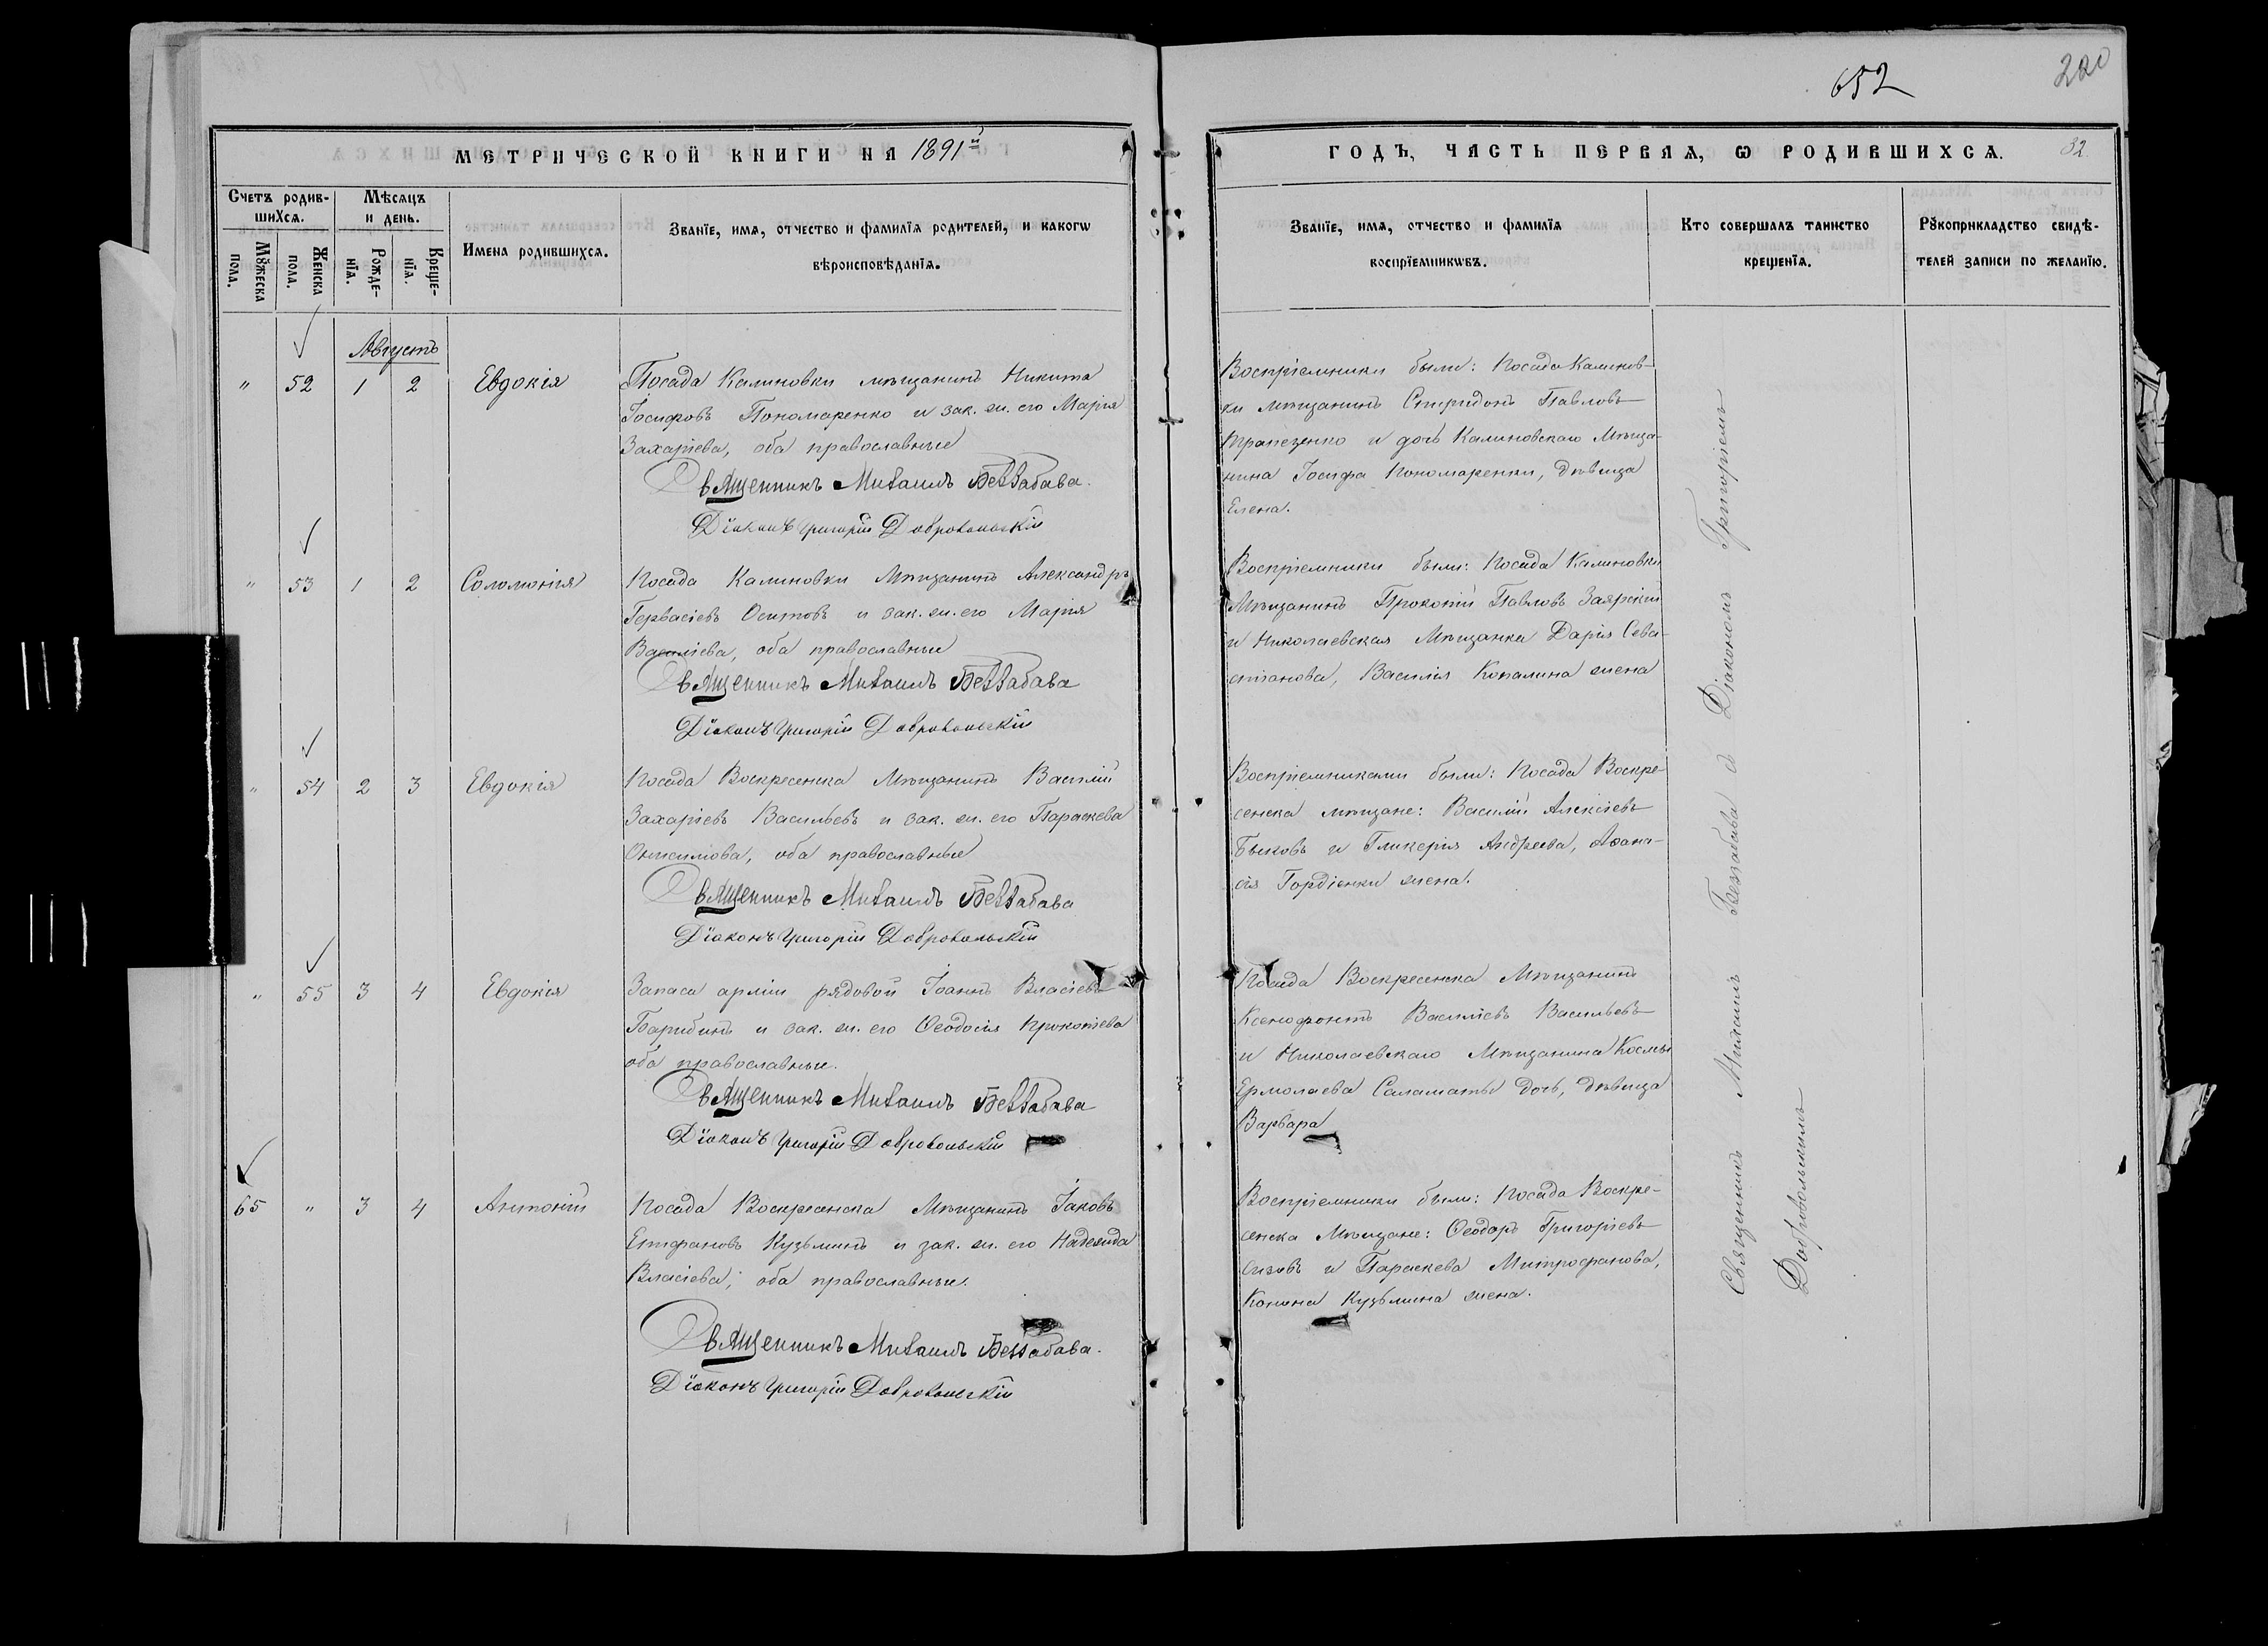 652
220
МЕТРИЧЕСКОЙ КНИГИ НА 1891й
ГОДЪ, ЧАСТЬ ПЕРВАЯ, Ѡ РОДИВШИХСѦ. 32
Счетъ родив-
шихсѧ.
Мѣсѧцъ
и день.
Мꙋжеска
пола.
Женска
пола.
Рожде-
нїѧ.
Креще-
нїѧ.
Имена родившихсѧ.
Званїе, имѧ, отчество и фамилїѧ родителей, и какогѡ
вѣроисповѣданїѧ.
Званїе, имѧ, отчество и фамилїѧ
воспрїемникѡвъ.
Кто совершалъ таинство
крещенїѧ.
Рꙋкоприкладство свидѣ-
телей записи по желанїю.
Августъ
" 52 1 2 Евдокія
Посада Калиновки мѣщанинъ Никита
Іосифовъ Пономаренко и зак. ж. его Марія
Захаріева, оба православные
Священникъ Михаилъ Беззабава.
Діаконъ Григорій Добровольскій
Воспріемники были: Посада Калинов-
ки мѣщанинъ Спиридонъ Павловъ
Трапезенко и дочь Калиновскаго Мѣща-
нина Іосифа Пономаренки, дѣвица
Елена.
" 53 1 2 Соломонія
Посада Калиновки Мѣщанинъ Александръ
Гервасіевъ Осиповъ и зак. ж. его Марія
Василіева, оба православные
Священникъ Михаилъ Беззабава
Діаконъ Григорій Добровольскій
Воспріемники были: Посада Калиновки
Мѣщанинъ Прокопій Павловъ Заярскій
и Николаевская Мѣщанка Дарія Сева-
стіанова, Василія Копалина жена
" 54 2 3 Евдокія
Посада Воскресенска Мѣщанинъ Василій
Захаріевъ Васильевъ и зак. ж. его Параскева
Онисимова, оба православные
Священникъ Михаилъ Беззабава
Діаконъ Григорій Добровольскій
Воспріемниками были: Посада Воскре-
сенска мѣщане: Василій Алексіевъ
Быковъ и Гликерія Андреева, Аѳана-
сія Гордіенки жена.
" 55 3 4 Евдокія
Запаса арміи рядовой Іоаннъ Власіевъ
Барибинъ и зак. ж. его Ѳеодосія Прокопіева
оба православные.
Священникъ Михаилъ Беззабава
Діаконъ Григорій Добровольскій
Посада Воскресенска Мѣщанинъ
Ксенофонтъ Василіевъ Васильевъ
и Николаевскаго Мѣщанина Космы
Ермолаева Саламаты дочь, дѣвица
Варвара
65 " 3 4 Антоній
Посада Воскресенска Мѣщанинъ Іаковъ
Епифановъ Кузьминъ и зак. ж. его Надежда
Власіева, оба православные.
Священникъ Михаилъ Беззабава.
Діаконъ Григорій Добровольскій
Воспріемники были: Посада Воскре-
сенска Мѣщане: Ѳеодоръ Григоріевъ
и Параскева Митрофанова,
Конона Кузьмина жена.
Священникъ Михаилъ Беззабава съ Діакономъ Григоріемъ
Добровольскимъ